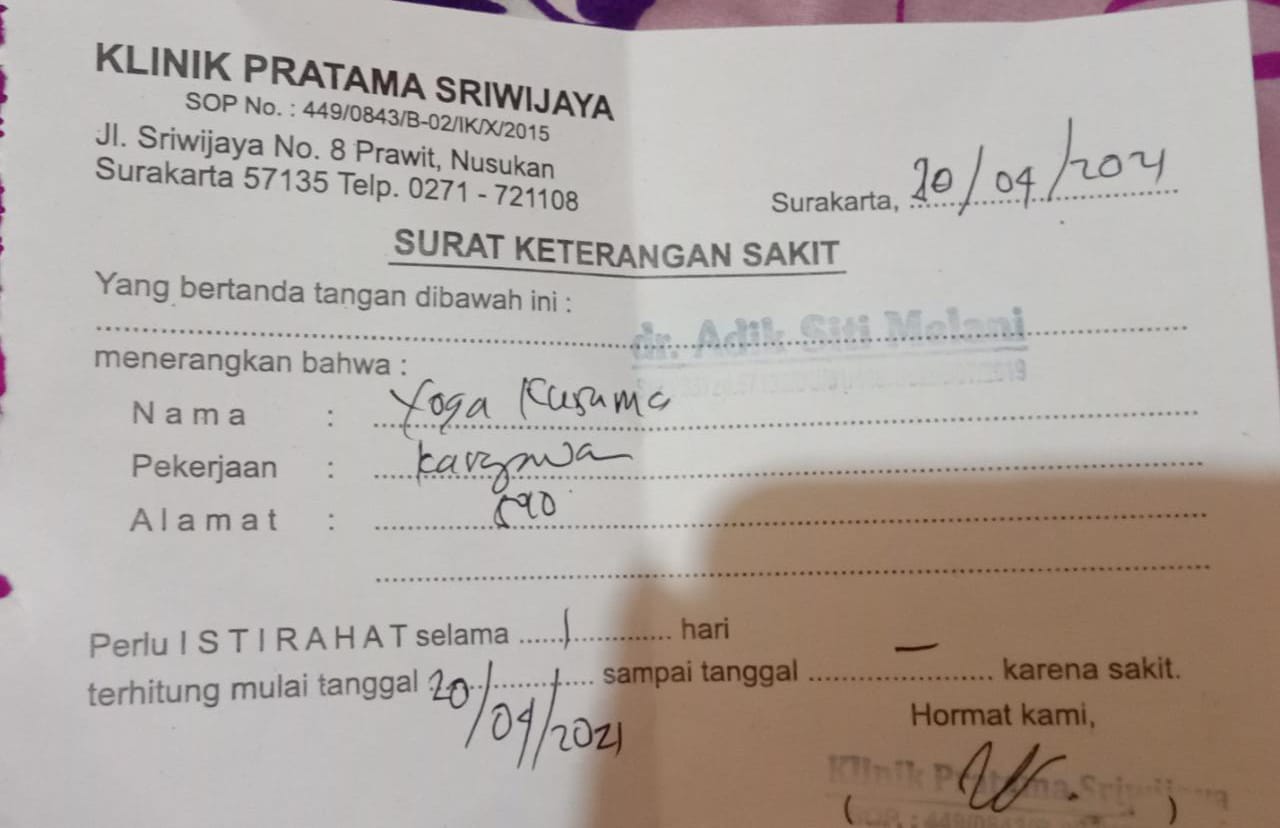 KLINIK PRATAMA SRIWIJAYA
SOP No. : 449/0843/B-02/IK/X/2015
Jl. Sriwijaya No. 8 Prawit, Nusukan
Surakarta 57135 Telp. 0271 - 721108
Surakarta, 20/04/2021
SURAT KETERANGAN SAKIT
Yang bertanda tangan dibawah ini :
dr. Adik Siti Melani
menerangkan bahwa :
Nama : Yoga Kusuma
Pekerjaan :
Alamat :
Perlu ISTIRAHAT selama 1 hari
terhitung mulai tanggal 20/04/2021 sampai tanggal — karena sakit.
Hormat kami,
Klinik Pratama Sriwijaya
( )